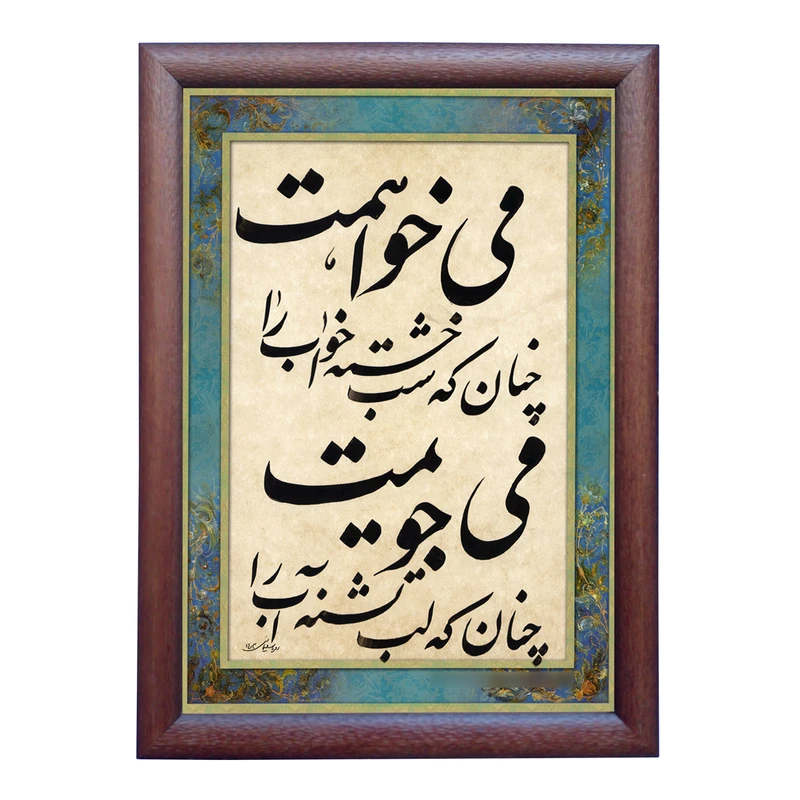 می خواهمت
چنان که شب خسته خواب را
می جویمت
چنان که لب تشنه آب را